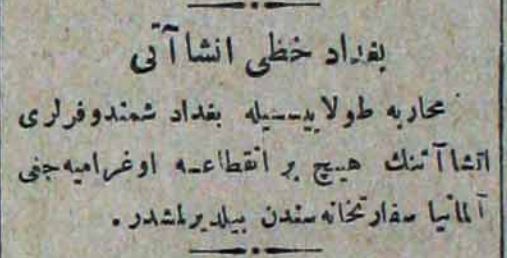 بغداد خطی انشاآتی
محاربه طولاییسیله بغداد شمندوفرلری
انشاآتنك هیچ بر انقطاعه اوغرامیه جغی
آلمانیا سفارتخانه سندن بیلدیرلمشدر .